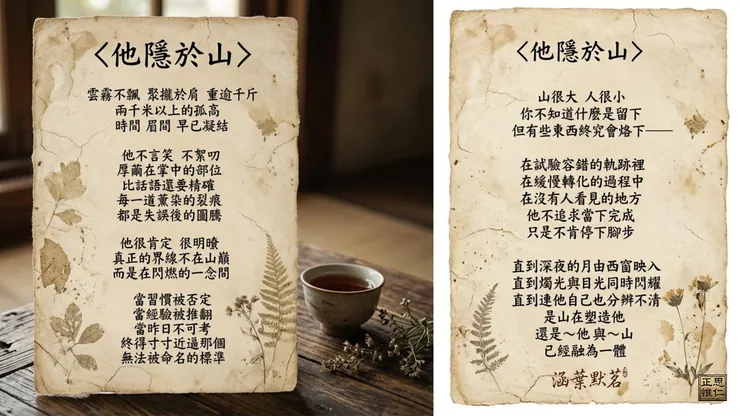 <他隱於山>
雲霧不飄 聚攏於肩 重逾千斤
兩千米以上的孤高
時間 眉間 早已凝結
他不言笑 不絮叨
厚繭在掌中的部位
比話語還要精確
每一道薰染的裂痕
都是失誤後的圖騰
他很肯定 很明瞭
真正的界線不在山巔
而是在閃燃的一念間
當習慣被否定
當經驗被推翻
當昨日不可考
終得寸寸近逼那個
無法被命名的標準
<他隱於山>
山很大 人很小
你不知道什麼是留下
但有些東西終究會烙下──
在試驗容錯的軌跡裡
在緩慢轉化的過程中
在沒有人看見的地方
他不追求當下完成
只是不肯停下腳步
直到深夜的月由西窗映入
直到燭光與目光同時閃耀
直到連他自己也分辨不清
是山在塑造他
還是～他 與～山
已經融為一體
涵葉默茗
正思惟仁